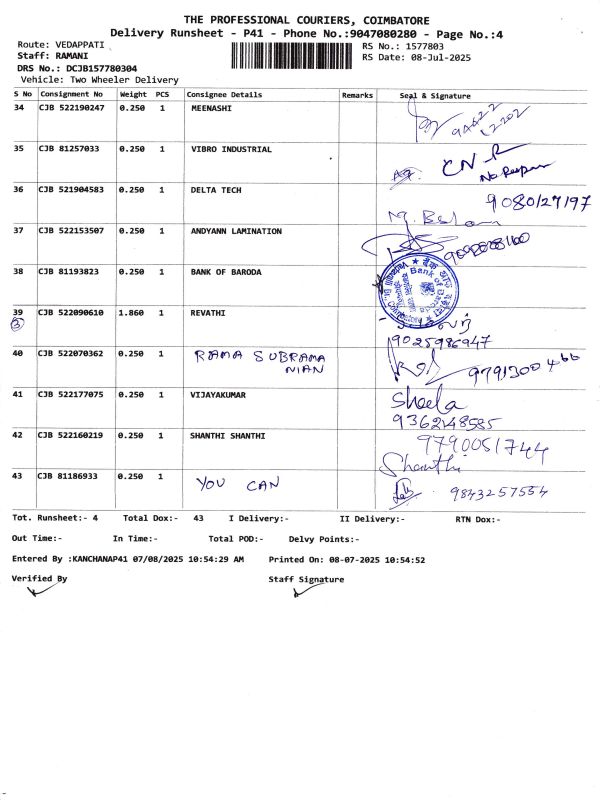 THE PROFESSIONAL COURIERS, COIMBATORE
Delivery Runsheet - P41 - Phone No.:9047080280 - Page No.:4
Route: VEDAPPATI RS No.: 1577803
Staff: RAMANI RS Date: 08-Jul-2025
DRS No.: DCJB157780304
Vehicle: Two Wheeler Delivery
S No Consignment No Weight PCS Consignee Details Remarks Seal & Signature
34 CJB 522190247 0.250 1 MEENASHI
35 CJB 81257033 0.250 1 VIBRO INDUSTRIAL
36 CJB 521904583 0.250 1 DELTA TECH 9080127197
37 CJB 522153507 0.250 1 ANDYANN LAMINATION
38 CJB 81193823 0.250 1 BANK OF BARODA Bank of Baroda
39 CJB 522090610 1.860 1 REVATHI
3 9025986947
40 CJB 522070362 0.250 1 RAMA SUBRAMA
NIAN 9791300466
41 CJB 522177075 0.250 1 VIJAYAKUMAR Sheela
9362148585
42 CJB 522160219 0.250 1 SHANTHI SHANTHI 9790051744
Shanthi
43 CJB 81186933 0.250 1 YOU CAN 9843257554
Tot. Runsheet:- 4 Total Dox:- 43 I Delivery:- II Delivery:- RTN Dox:-
Out Time:- In Time:- Total POD:- Delvy Points:-
Entered By :KANCHANAP41 07/08/2025 10:54:29 AM Printed On: 08-07-2025 10:54:52
Verified By Staff Signature